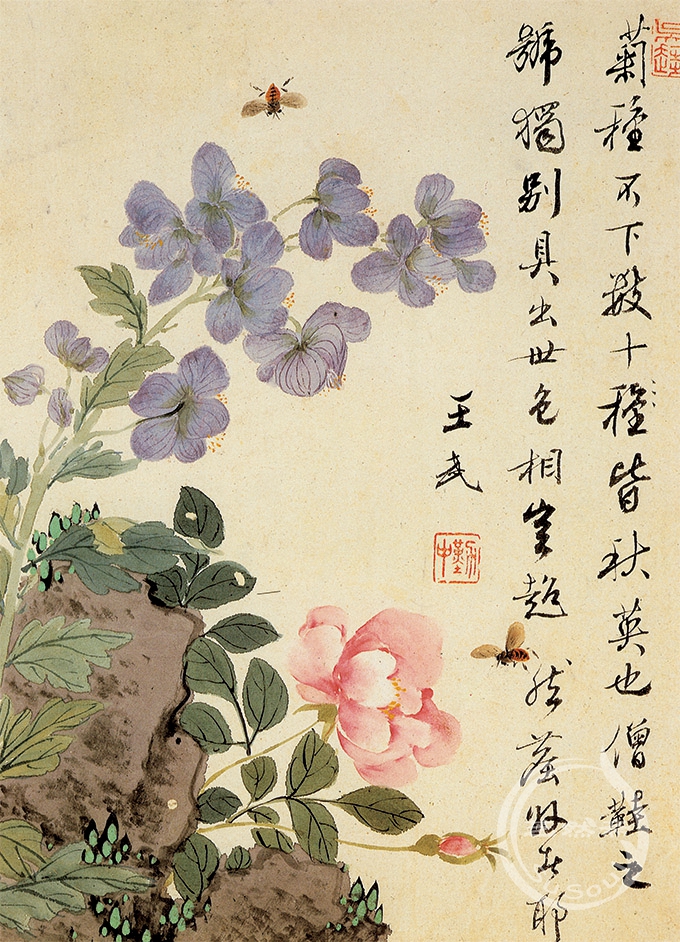 菊種不下數十種皆秋英也僧鞋之
號獨別具出世色相豈超然塵外者耶
王武